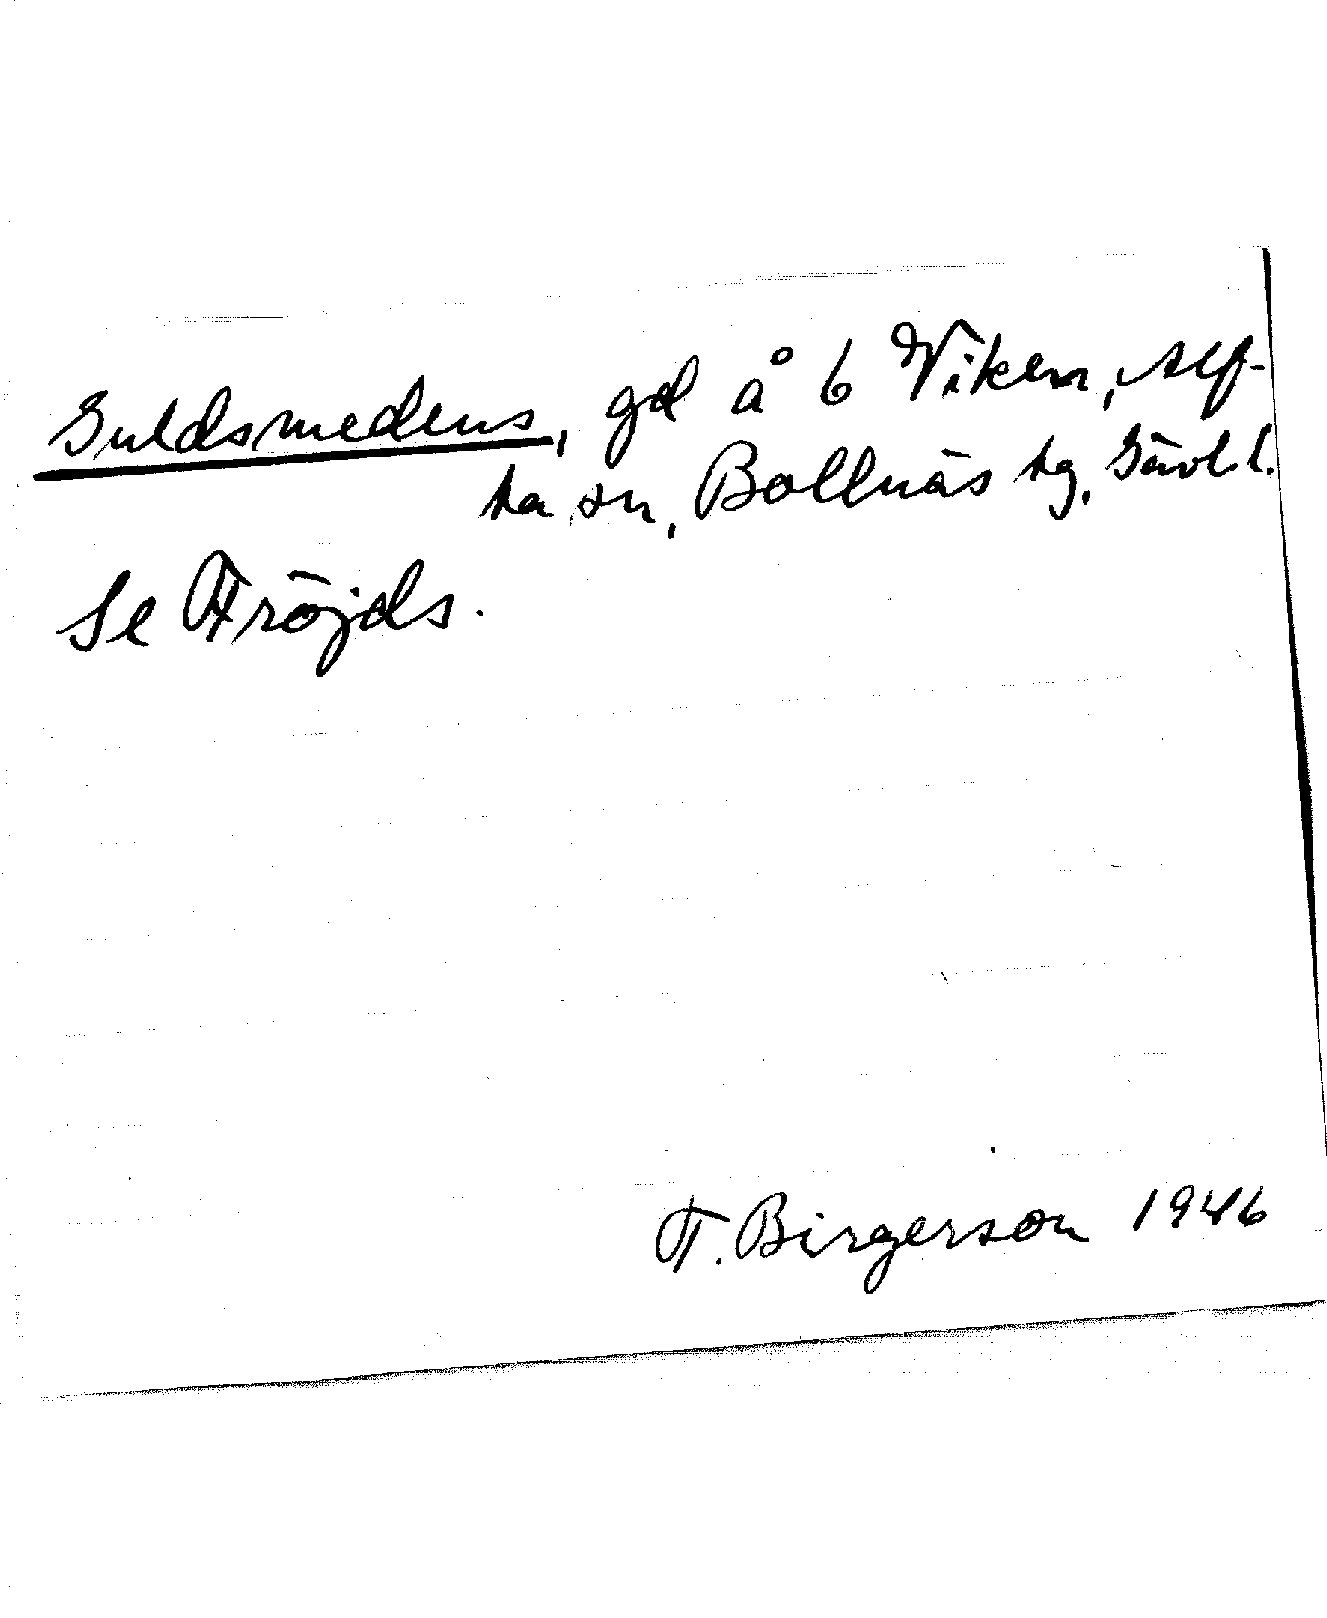 Guldsmedens, gd å 6 Viken, Alf-
ta sn, Bollnäs tg, Gävl. l.
Se Fröjds.
T. Birgerson 1946